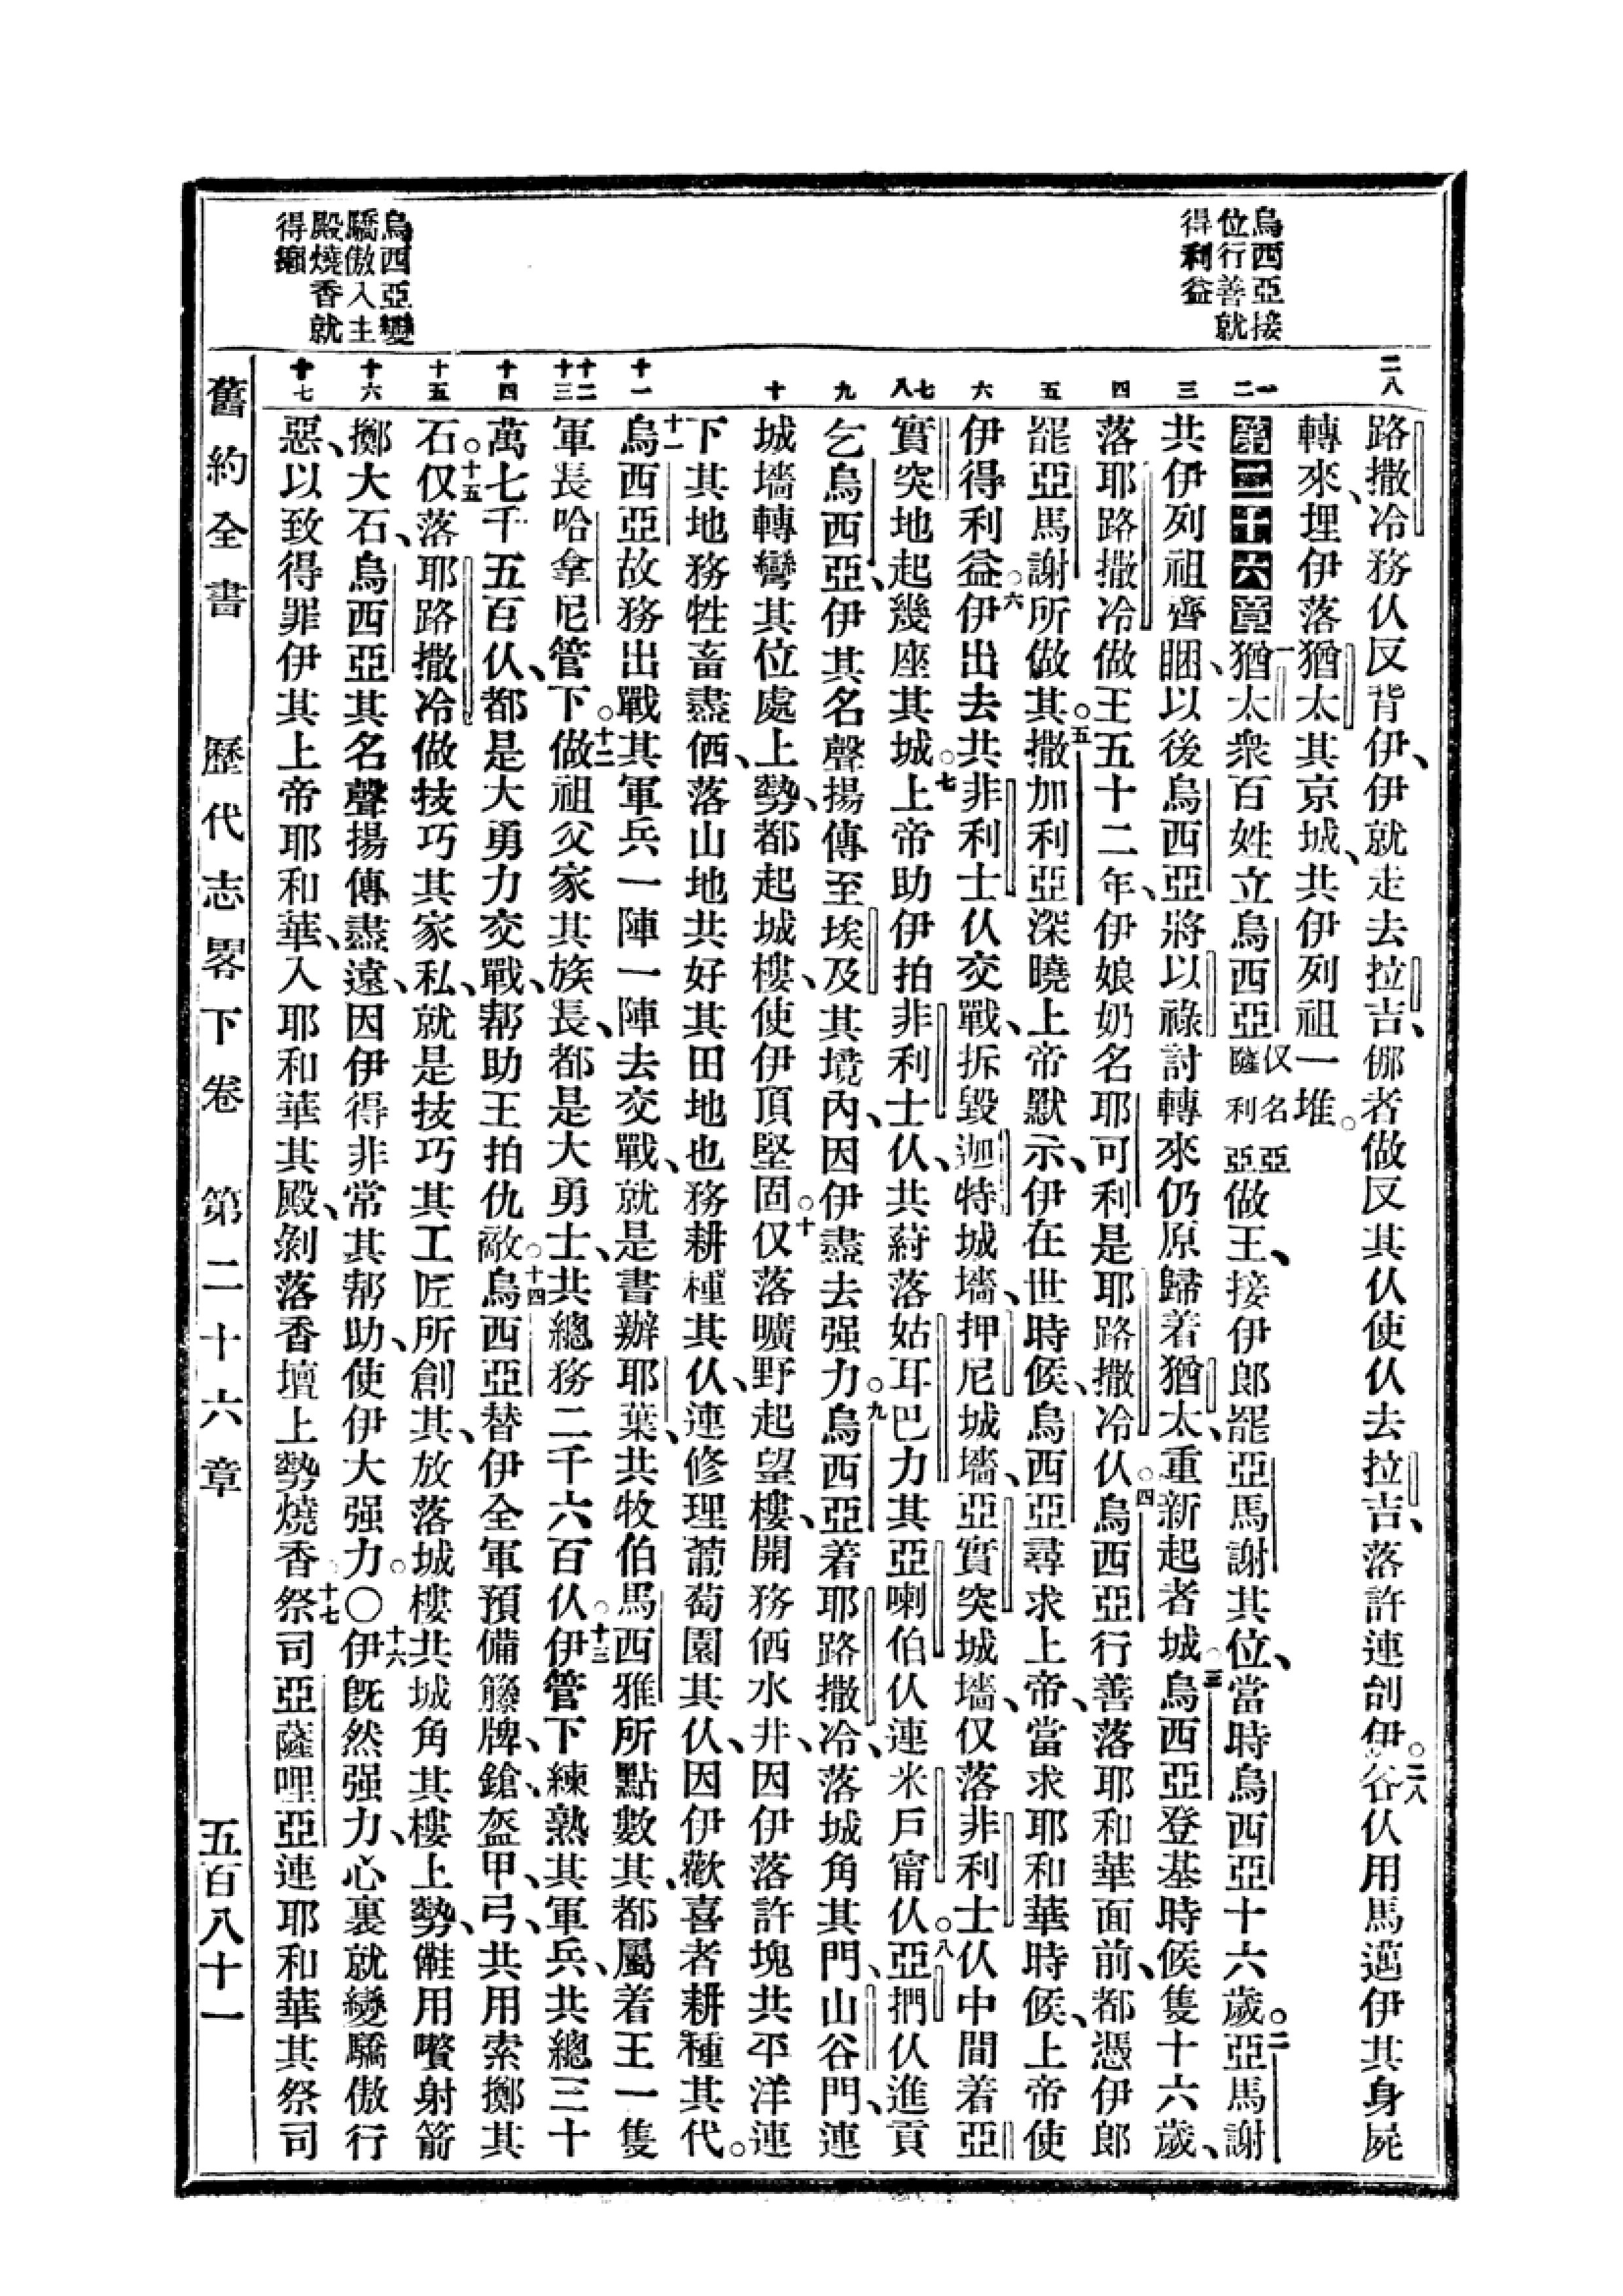 烏西亞接
位行善就
得利益
烏西亞變
驕傲入主
殿燒香就
得癩
二八
路撒冷務仈反背伊、伊就走去拉吉、㑚者做反其仈使仈去拉吉、落許連剖伊。二八各仈用馬遝伊其身屍
轉來、埋伊落猶太其京城、共伊列祖一堆。
一
二
第二十六章一猶太衆百姓立烏西亞仅名亞薩利亞做王、接伊郎罷亞馬謝其位、當時烏西亞十六歲。二亞馬謝
三
共伊列祖齊睏、以後烏西亞將以祿討轉來仍原歸着猶太、重新起者城。三烏西亞登基時候隻十六歲、
四
落耶路撒冷做王五十二年、伊娘奶名耶可利是耶路撒冷仈。四烏西亞行善落耶和華面前、都憑伊郎
五
罷亞馬謝所做其。五撒加利亞深曉上帝默示、伊在世時候、烏西亞尋求上帝、當求耶和華時候、上帝使
六
伊得利益。六伊出去共非利士仈交戰、拆毀迦特城墻、押尼城墻、亞實突城墻、仅落非利士仈中間着亞
七
八
實突地起幾座其城。七上帝助伊拍非利士仈、共蒔落姑耳巴力其亞喇伯仈連米戶甯仈。八亞捫仈進貢
九
乞烏西亞、伊其名聲揚傳至埃及其境內、因伊盡去强力。九烏西亞着耶路撒冷、落城角其門、山谷門、連
十
城墻轉彎其位處、上勢、都起城樓、使伊頂堅固。十仅落曠野起望樓、開務𠵽水井、因伊落許塊共平洋連
下其地務牲畜盡𠵽、落山地共好其田地也務耕種其仈、連修理葡萄園其仈、因伊歡喜者耕種其代。
十一
十一烏西亞故務出戰其軍兵一陣一陣去交戰、就是書辦耶葉、共牧伯馬西雅所點數其、都屬着王一隻
十二
十三
軍長哈拿尼管下。十二做祖父家其族長、都是大勇士、共總務二千六百仈。十三伊管下練熟其軍兵、共總三十
十四
萬七千五百仈、都是大勇力交戰、幫助王拍仇敵。十四烏西亞替伊全軍預備籐牌、鎗、盔甲、弓、共用索擲其
十五
石。十五仅落耶路撒冷做技巧其家私、就是技巧其工匠所創其、放落城樓共城角其樓上勢、儺用囋射箭
十六
擲大石、烏西亞其名聲揚傳盡遠、因伊得非常其幫助、使伊大强力。〇十六伊旣然强力、心裏就變驕傲行
十七
惡、以致得罪伊其上帝耶和華、入耶和華其殿、剝落香壇上勢燒香。十七祭司亞薩哩亞連耶和華其祭司
舊約全書　歷代志畧下卷　第二十六章　五百八十一